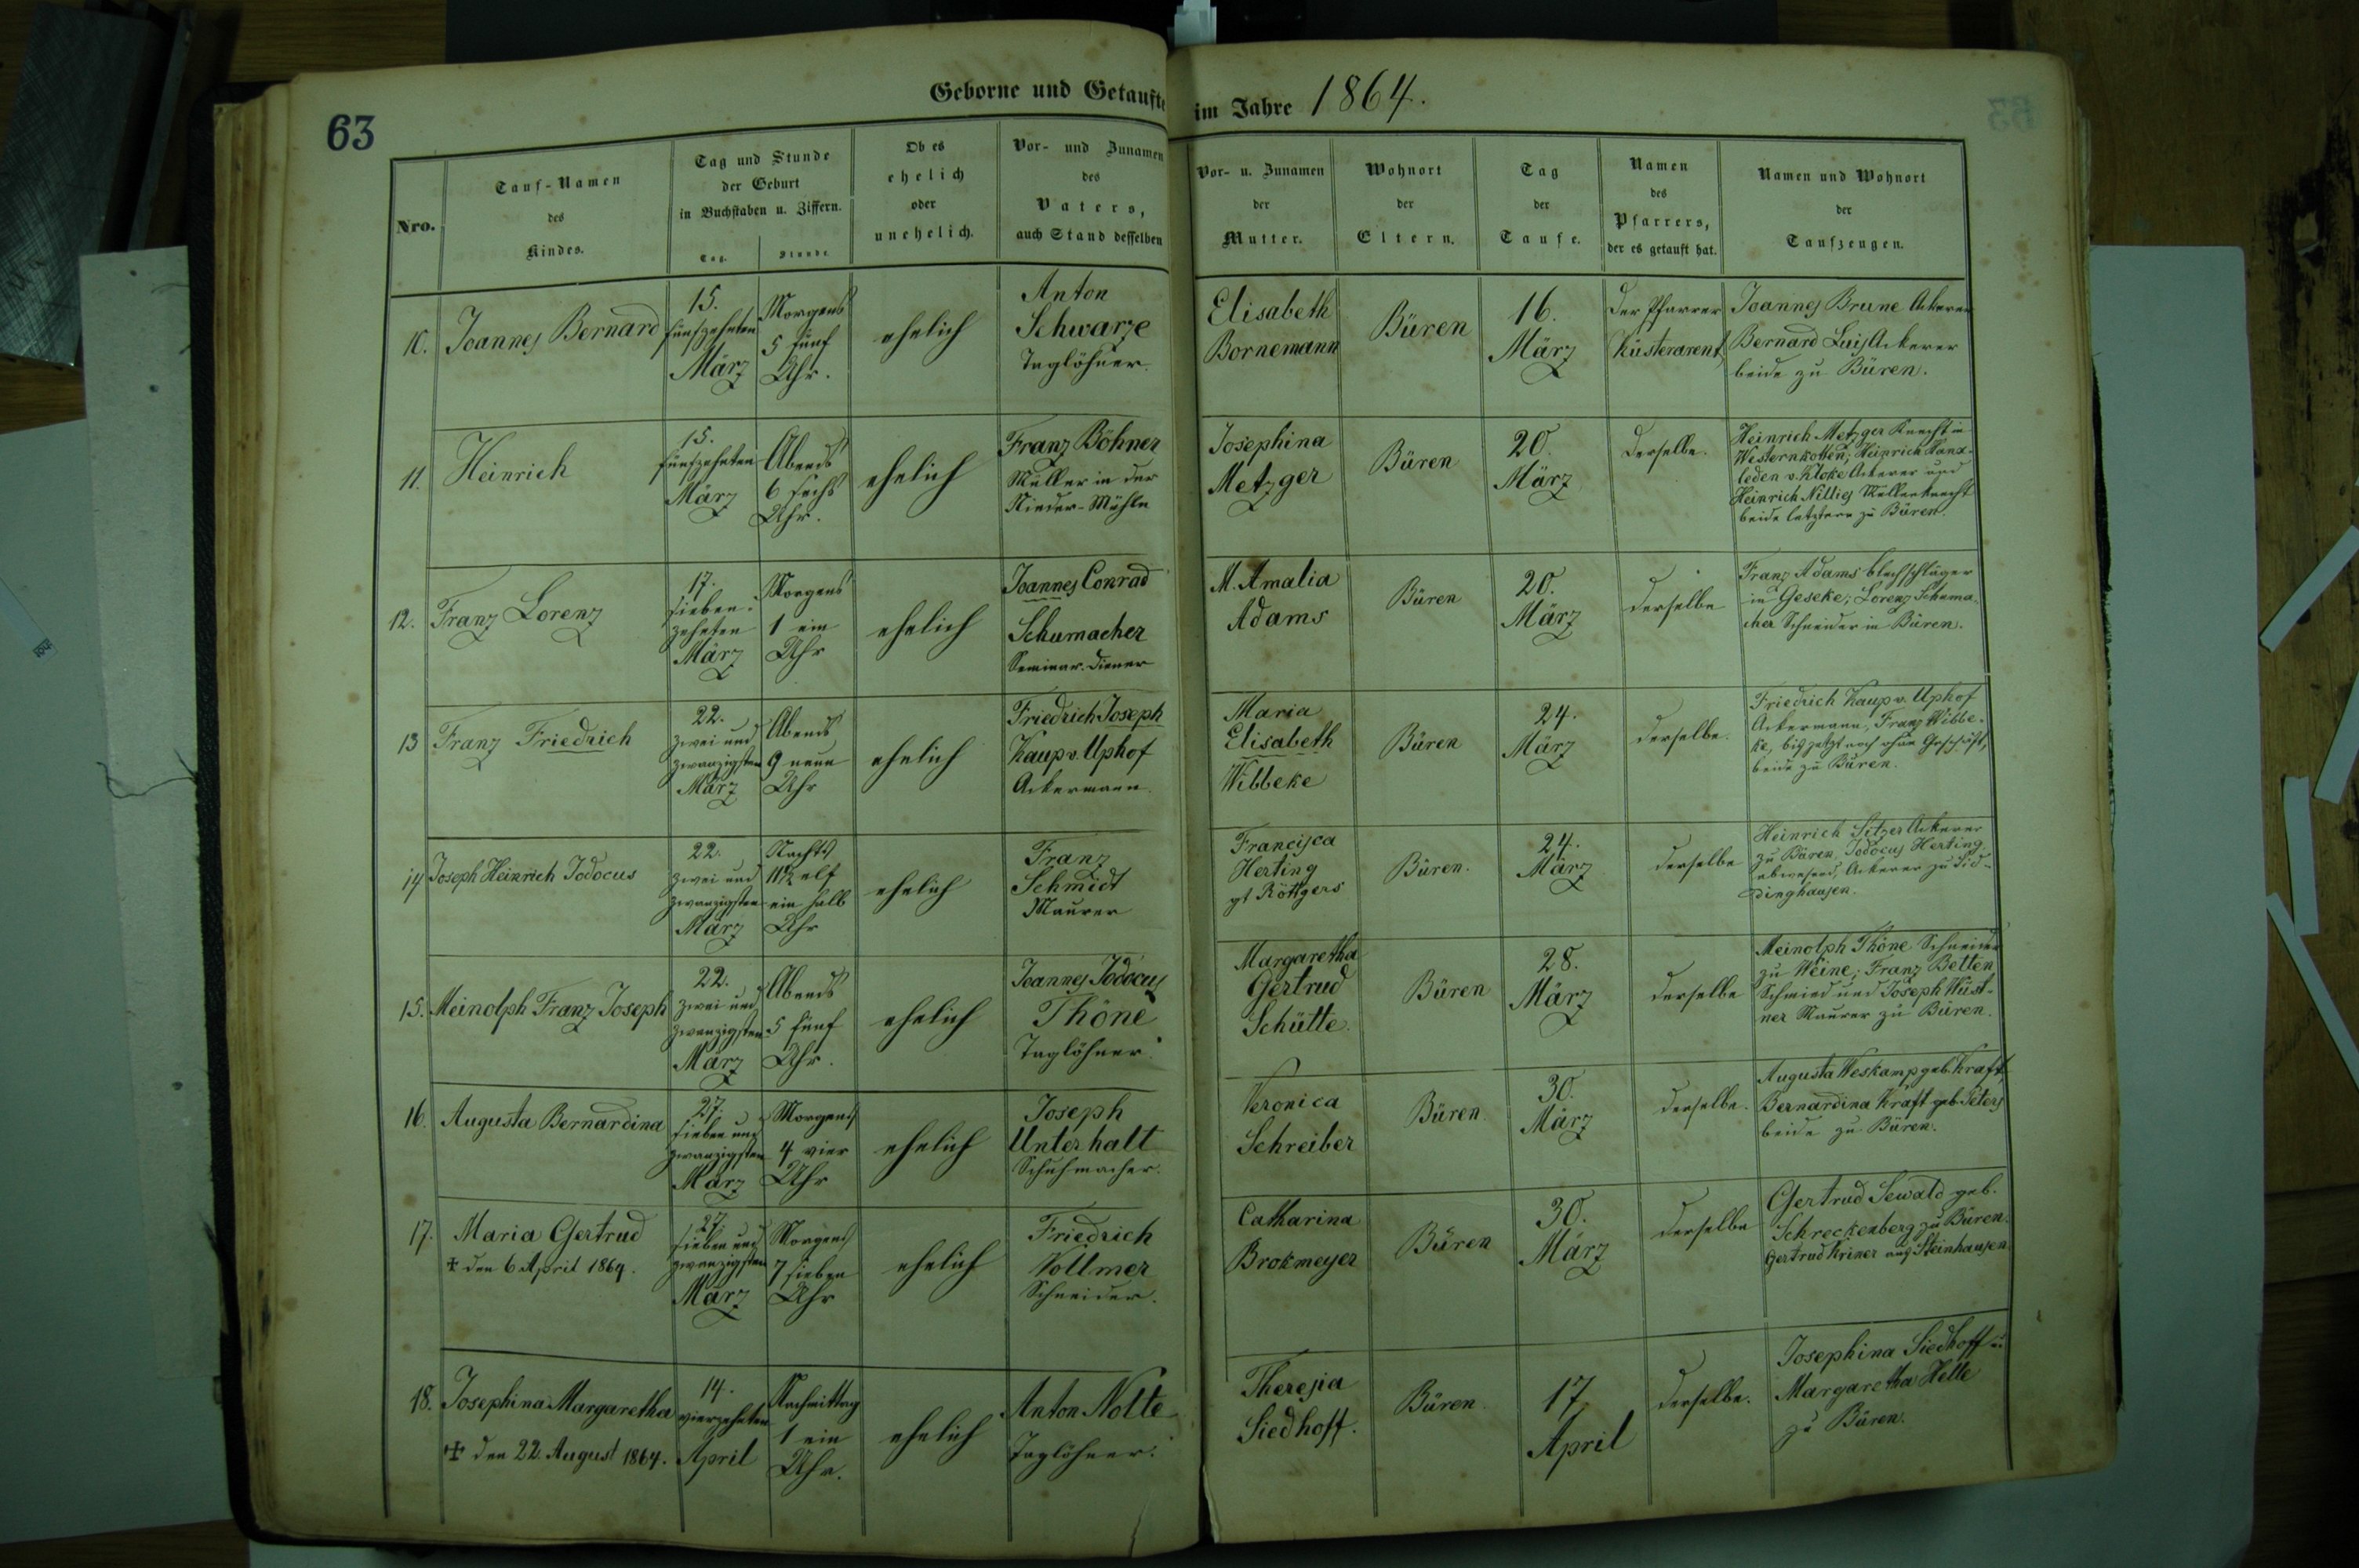 63
Geborne und Getaufte im Jahre 1864.
Nro.
Tauf-Namen
des
Kindes.
Tag und Stunde
der Geburt
in Buchstaben u. Ziffern.
Tag.
Stunde
Ob es
ehelich
oder
unehelich.
Vor- und Zunamen
des
Vaters,
auch Stand desselben
Vor- u. Zunamen
der
Mutter.
Wohnort
der
Eltern.
Tag
der
Taufe.
Namen
des
Pfarrers,
der es getauft hat.
Namen und Wohnort
der
Taufzeugen.
10.
Joannes Bernard
15.
fünfzehnten
März
Morgens
5 fünf
Uhr.
ehelich
Anton
Schwarze
Taglöhner.
Elisabeth
Bornemann
Büren
16.
März
Der Pfarrer
Küsterarent
Joannes Brune Ackerer
Bernard Luis Ackerer
beide zu Büren.
11.
Heinrich
15.
fünfzehnten
März
Abends
6 sechs
Uhr.
ehelich
Franz Böhner
Müller in der
Nieder-Mühle
Josephina
Metzger
Büren
20.
März
derselbe.
Heinrich Metzger Knecht in
Westernkotten; Heinrich Hanx-
leden v. Kloke Ackerer und
Heinrich Nillies Müllerknecht
beide letztere zu Büren.
12.
Franz Lorenz
17.
sieben-
zehnten
März
Morgens
1 ein
Uhr
ehelich
Joannes Conrad
Schumacher
Seminar-Diener
M. Amalia
Adams
Büren
20.
März
derselbe
Franz Adams Blechschläger
in Geseke; Lorenz Schuma-
cher Schneider in Büren.
13
Franz Friedrich
22.
zwei und
zwanzigsten
März
Abends
9 neun
Uhr
ehelich
Friedrich Joseph
Kaup v. Uphof
Ackermann.
Maria
Elisabeth
Wibbeke
Büren
24.
März
derselbe.
Friedrich Kaup v. Uphof
Ackermann, Franz Wibbe-
ke, bis jetzt noch ohne Geschäft,
beide zu Büren.
14
Joseph Heinrich Jodocus
22.
zwei und
zwanzigsten
März
Nachts
11½ elf
ein halb
Uhr
ehelich
Franz
Schmidt
Maurer
Francisca
Herting
gt Röttgers
Büren.
24.
März
derselbe
Heinrich Sitzer Ackerer
zu Büren, Jodocus Herting
abwesend, Ackerer zu Sid-
dinghausen.
15.
Meinolph Franz Joseph
22.
zwei und
zwanzigsten
März
Abends
5 fünf
Uhr.
ehelich
Joannes Jodocus
Thöne
Taglöhner.
Margaretha
Gertrud
Schütte.
Büren
28.
März
derselbe
Meinolph Thöne Schneider
zu Weine; Franz Betten
Schmied und Joseph Wüst-
ner Maurer zu Büren.
16.
Augusta Bernardina
27.
sieben und
zwanzigsten
März
Morgens
4 vier
Uhr
ehelich
Joseph
Unterhalt
Schuhmacher.
Veronica
Schreiber
Büren
30.
März
derselbe.
Augusta Weskamp geb. Kraft,
Bernardina Kraft geb. Peters
beide zu Büren.
17.
Maria Gertrud
✝ den 6 April 1864.
27.
sieben und
zwanzigsten
März
Morgens
7 sieben
Uhr
ehelich
Friedrich
Vollmer
Schneider.
Catharina
Brokmeyer
Büren
30.
März
derselbe
Gertrud Sewald geb.
Schreckenberg zu Büren.
Gertrud Kriner aus Steinhausen.
18.
Josephina Margaretha
✝ den 22. August 1864.
14.
vierzehnten
April
Nachmittag
1 ein
Uhr.
ehelich
Anton Nolte
Taglöhner.
Theresia
Siedhoff.
Büren
17.
April
derselbe.
Josephina Siedhoff u.
Margaretha Helle
zu Büren.